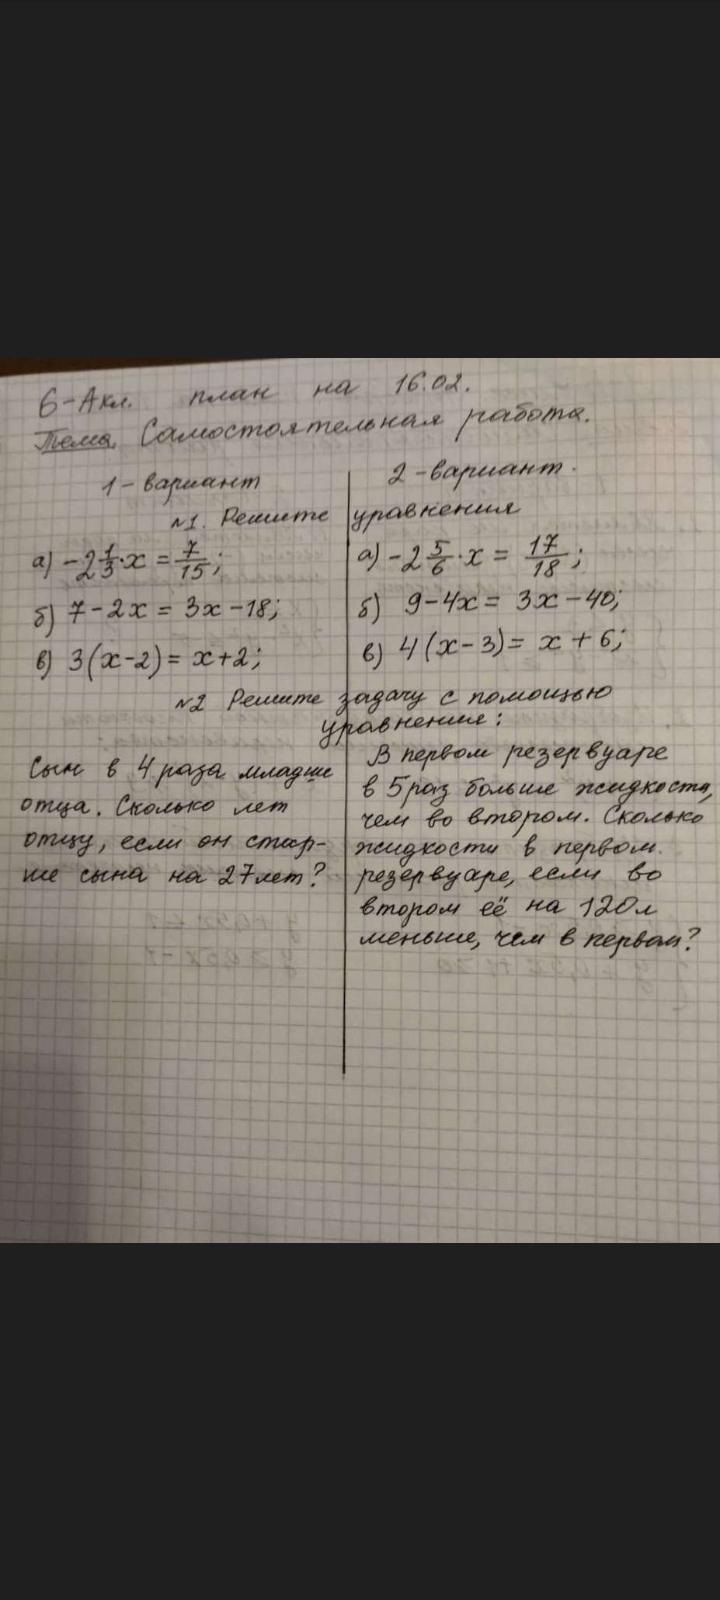 6-А кл. план на 16.02.
Тема. Самостоятельная работа.
1-вариант
2-вариант.
№1. Решите уравнения
а) -2 1/3 · x = 7/15;
б) 7-2x = 3x-18;
в) 3(x-2) = x+2;
а) -2 5/6 · x = 17/18;
б) 9-4x = 3x-40;
в) 4(x-3) = x+6;
№2 Решите задачу с помощью
уравнения:
Сын в 4 раза младше
отца. Сколько лет
отцу, если он стар-
ше сына на 27 лет?
В первом резервуаре
в 5 раз больше жидкости,
чем во втором. Сколько
жидкости в первом
резервуаре, если во
втором её на 120л
меньше, чем в первом?